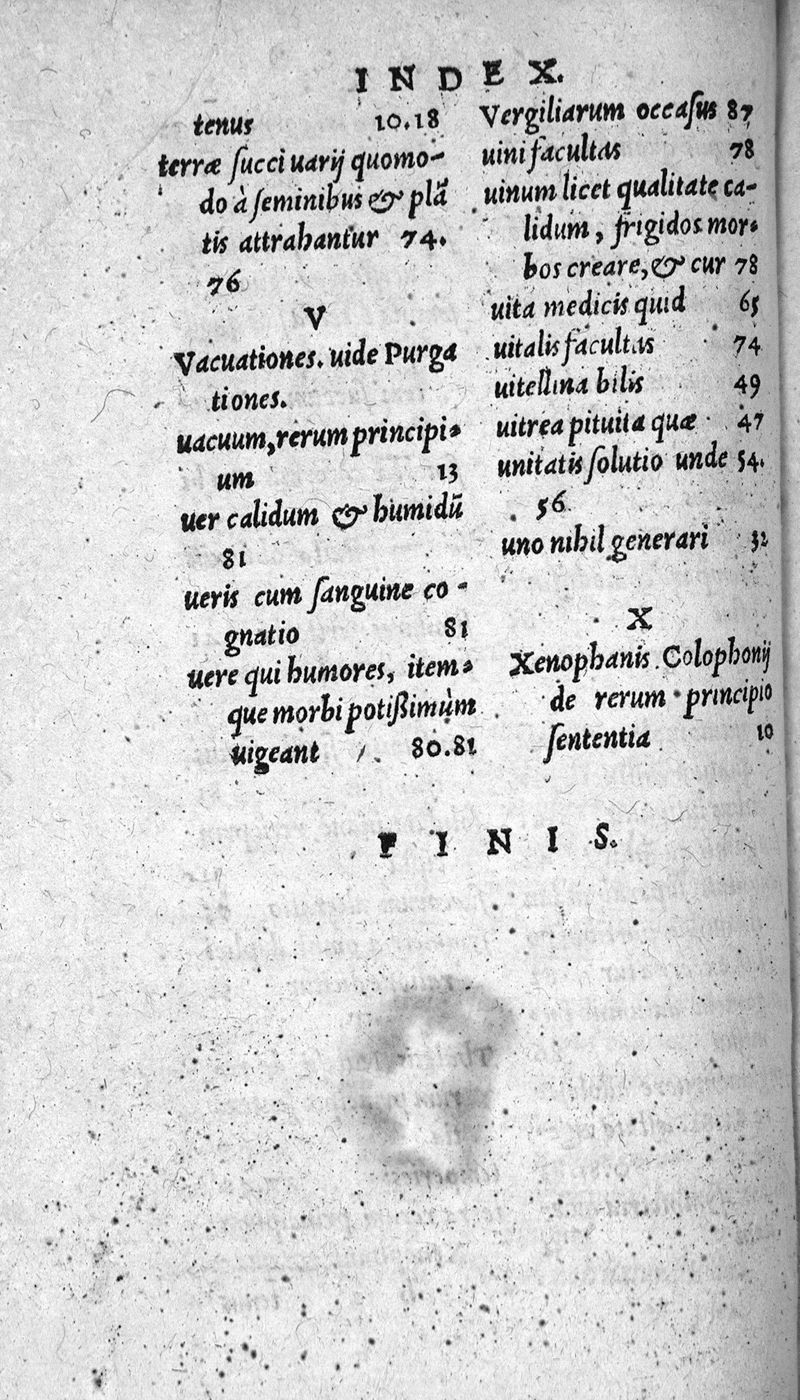 INDEX.
tenus 10.18
terræ ſucci uarij quomo-
do à ſeminibus & plā
tis attrahantur 74.
76
V
Vacuationes. uide Purga
tiones.
uacuum, rerum principi-
um 13
uer calidum & humidū
81
ueris cum ſanguine co-
gnatio 81
uere qui humores, item-
que morbi potißimùm
uigeant 80.81
Vergiliarum occaſus 87
uini facultas 78
uinum licet qualitate ca-
lidum, frigidos mor-
bos creare, & cur 78
uita medicis quid 65
uitalis facultas 74
uitellina bilis 49
uitrea pituita quæ 47
unitatis ſolutio unde 54.
56
uno nihil generari 32
X
Xenophanis Colophonij
de rerum principio
ſententia 10
FINIS.